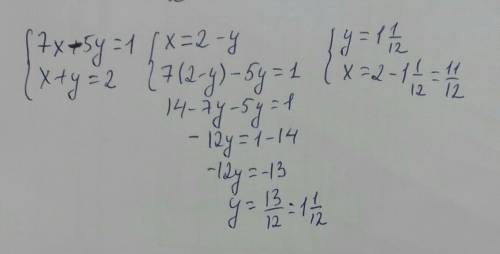 {7x-5y=1
{x+y=2
{x=2-y
{7(2-y)-5y=1
14-7y-5y=1
-12y=1-14
-12y=-13
y=13/12=1 1/12
{y=1 1/12
{x=2-1 1/12=11/12